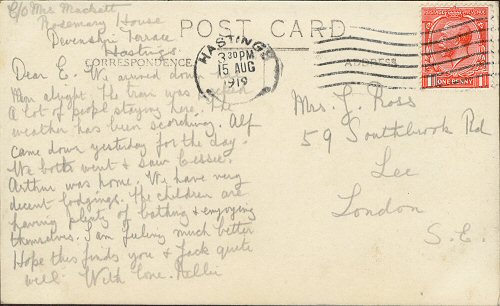 C/O Mrs Mackett
Rosemary House
Devonshire Terrace
Hastings
POST CARD
CORRESPONDENCE
ADDRESS
HASTINGS
3 30 PM
15 AUG
1919
ONE PENNY
Dear E. We arrived down
Mon alright. The train was
A lot of people staying here. The
weather has been scorching. Alf
came down yesterday for the day.
We both went & saw Cessie.
Arthur was home. We have very
decent lodgings. The children are
having plenty of bathing & enjoying
themselves. I am feeling much better
Hope this finds you & Jack quite
well. With love. Nellie
Mrs. J. Ross
59 Southbrook Rd
Lee
London
S.E.